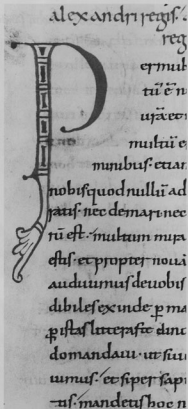 alexandri regis.
reg
P
ermult
tū ē n
uræ et
multū e
minibus. etiam
nobis quod nullū ad
ratis. nec de mari nec
rū est. multum mira
estis. et propter noui
audiuimus de uobis
dibiles exinde p̱ ma
p̱ istas litteras te
domandauī. ut
iumus. et si per sapi
tis. mandetis hoc n